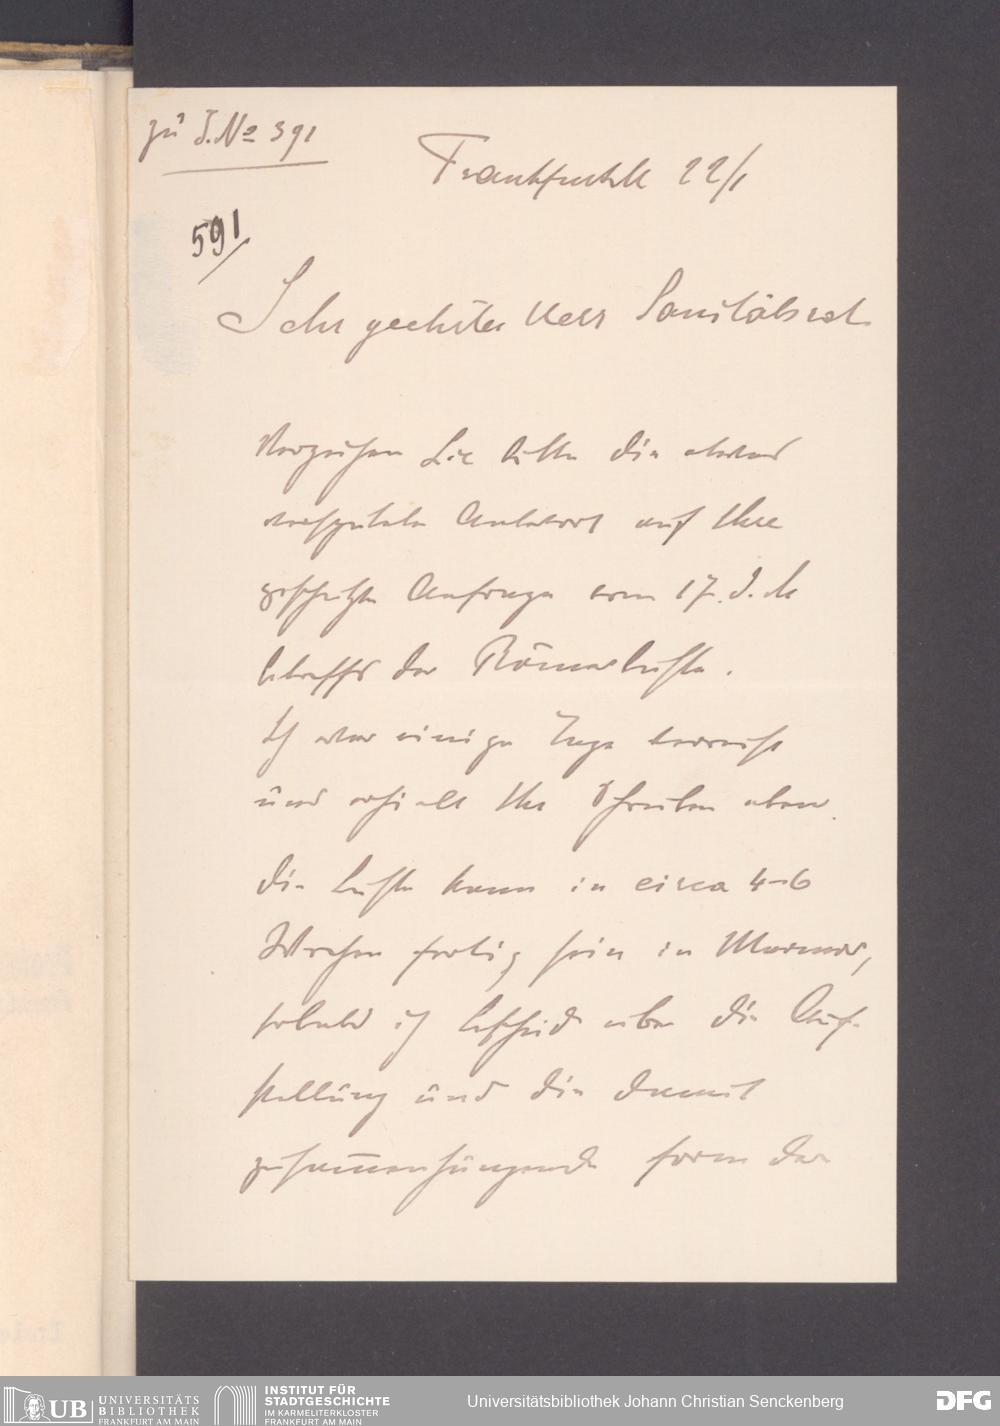 zu J. No 391
Frankfurt 22/1
591/
Sehr geehrter Herr Sanitätsrat
Verzeihen Sie bitte die etwas
verspätete Antwort auf Ihre
geschätzte Anfrage vom 17. d. M
betreffs der Römerbüste.
Ich war einige Tage verreist
und erhielt Ihr Schreiben eben.
Die Büste kann in circa 4-6
Wochen fertig sein in Marmor,
sobald ich Bescheid über die Auf-
stellung und die damit
zusammenhängende Form der
UB UNIVERSITÄTS
BIBLIOTHEK
FRANKFURT AM MAIN
INSTITUT FÜR
STADTGESCHICHTE
IM KARMELITERKLOSTER
FRANKFURT AM MAIN
Universitätsbibliothek Johann Christian Senckenberg
DFG